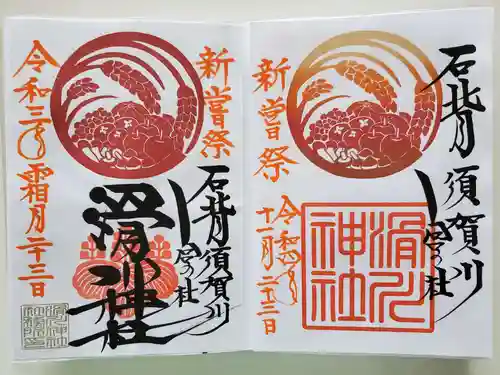 石背須賀川
の社
新嘗祭
令和四年
十一月二十三日
滑川
神社
新嘗祭
石背須賀川
の社
滑川神社
令和三年霜月二十三日